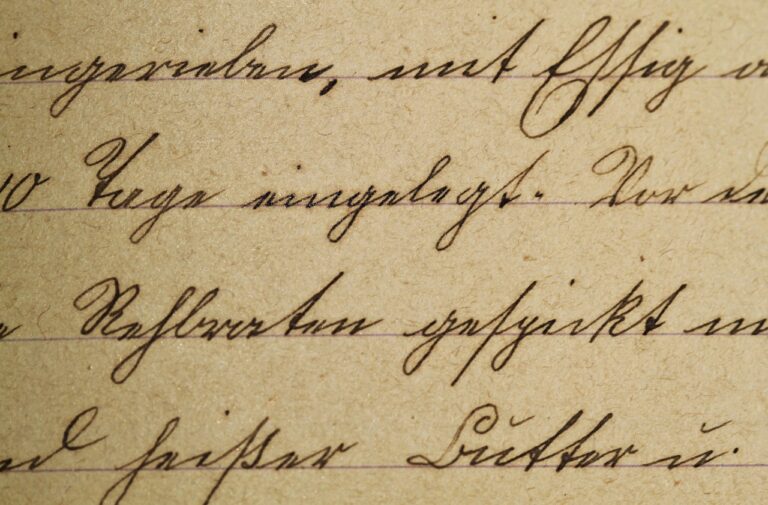 ingerieben, mit Essig a
10 Tage eingelegt. Vor de
e Rehbraten gespickt m
nd heißer Butter u.